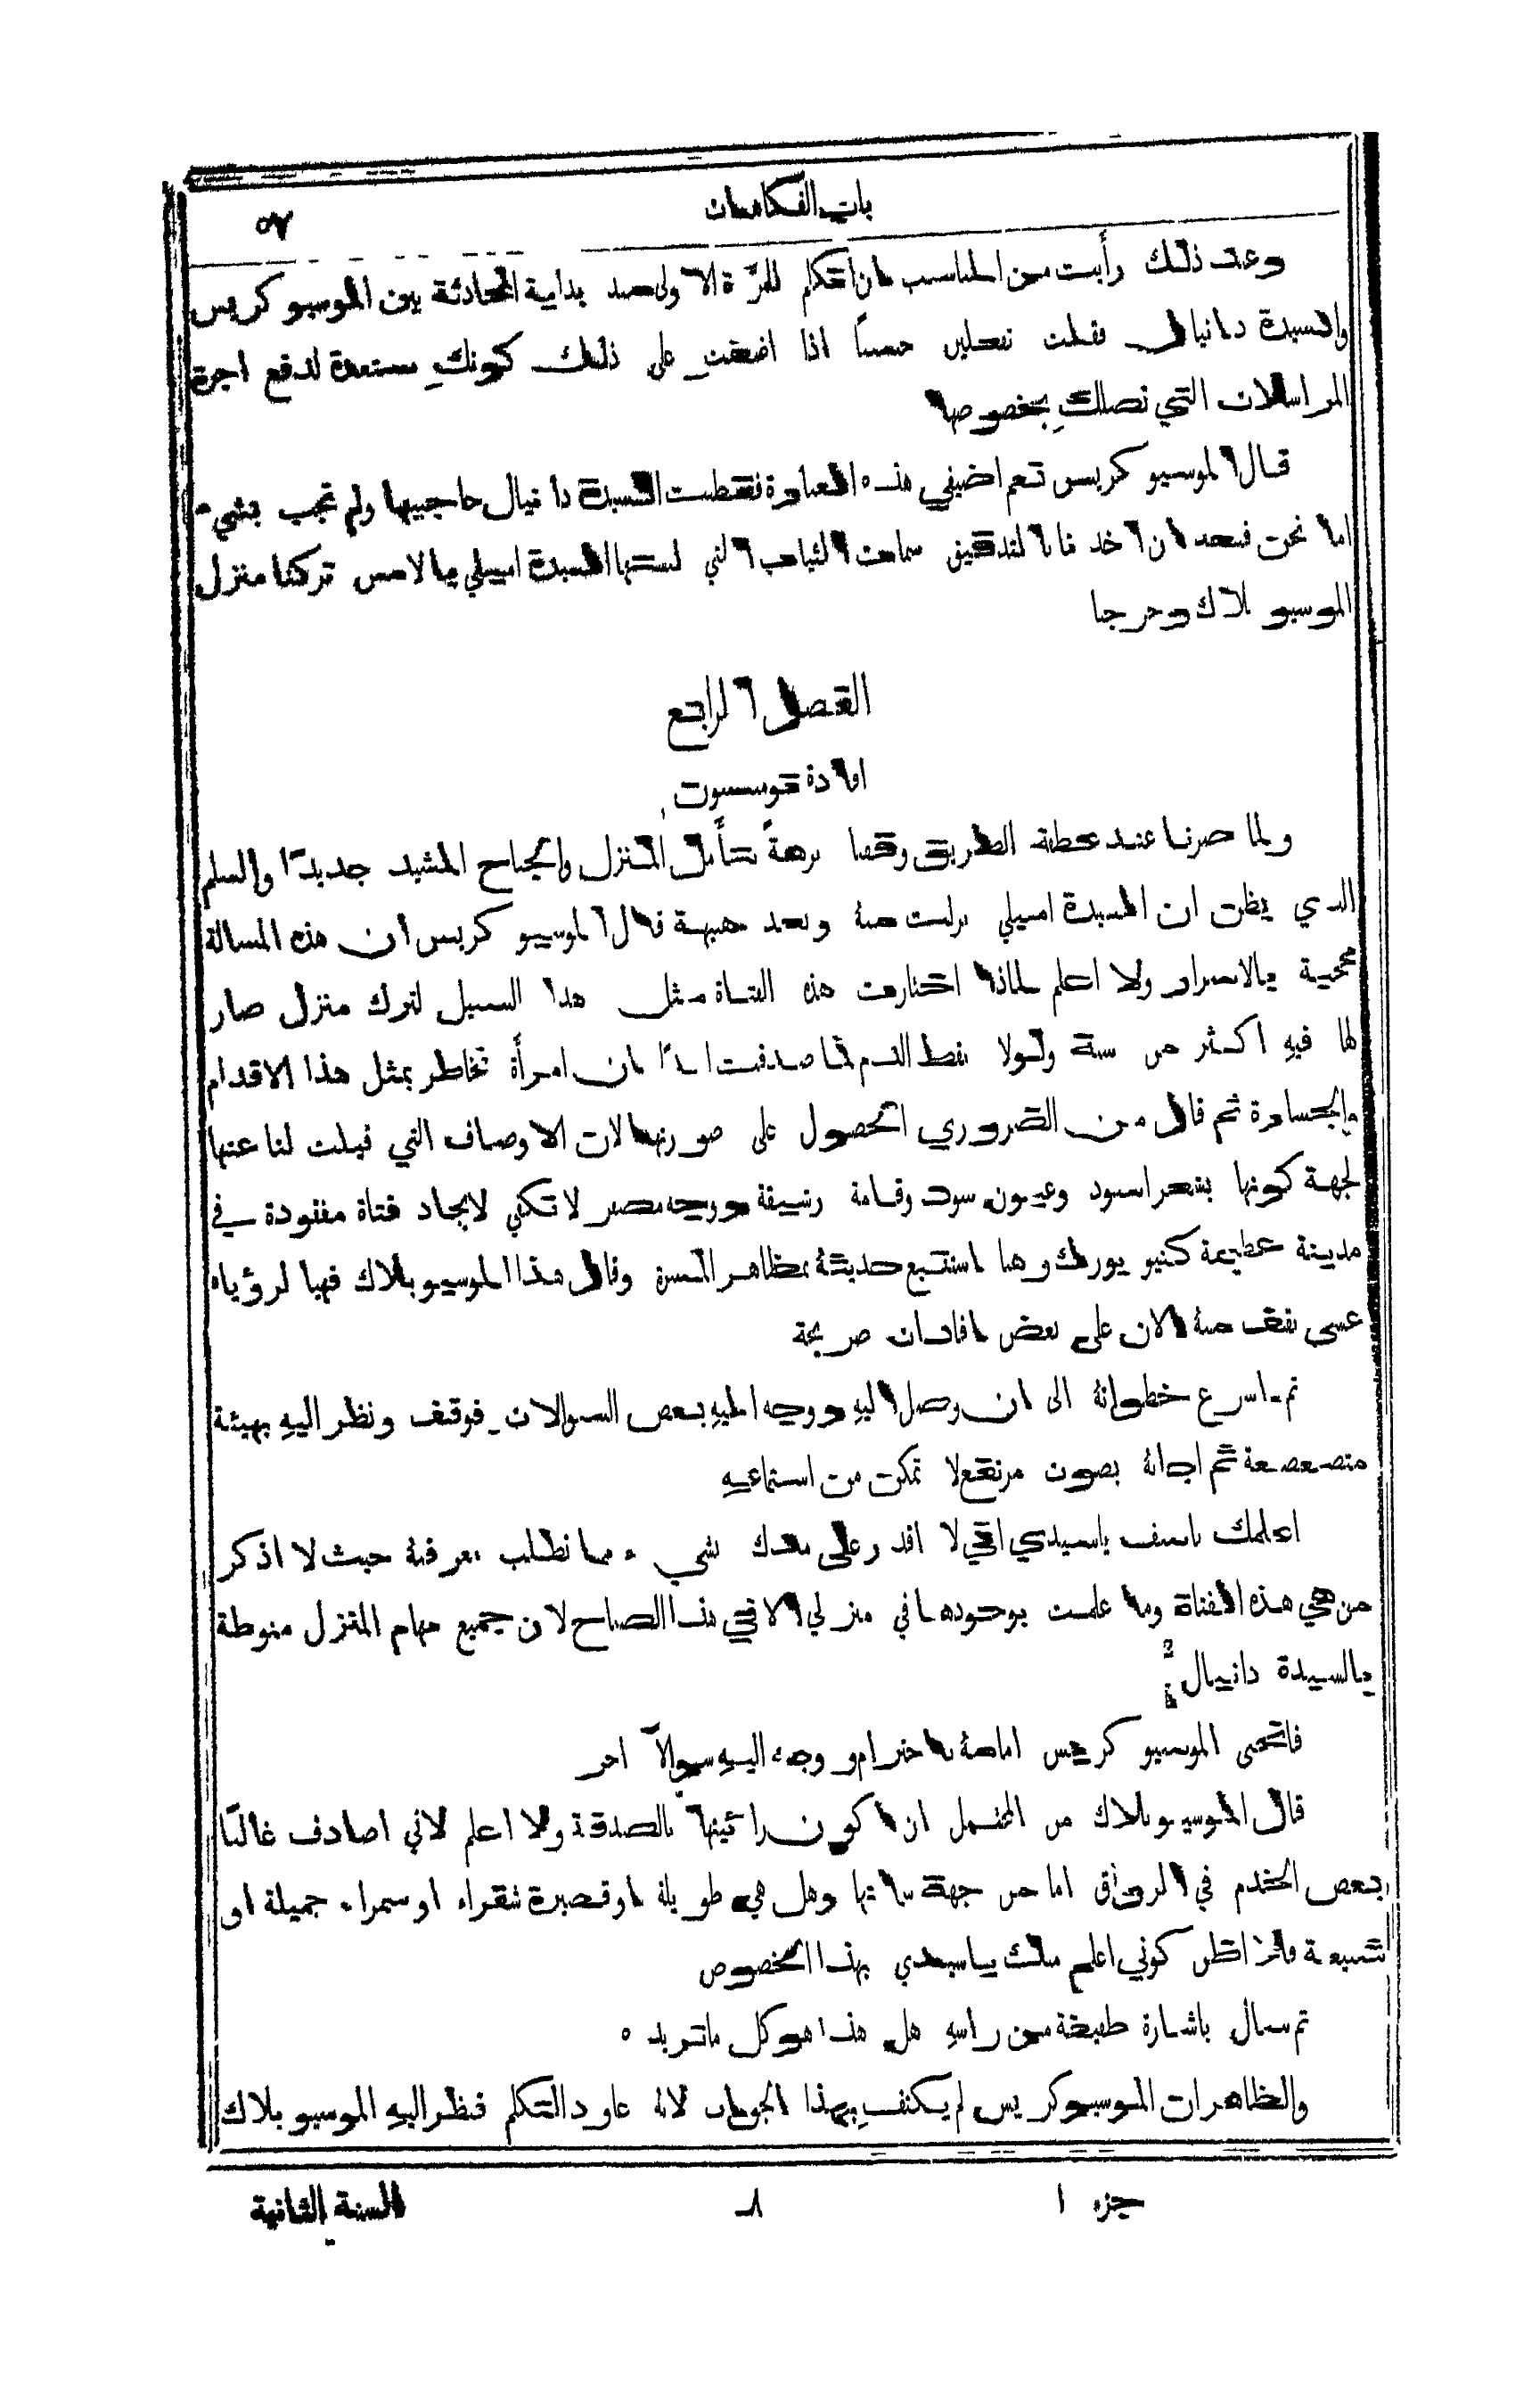 باب الفكاهات
٥٧
وعند ذلك رأيت من المناسب ان اتكلم للمرَّة الاولى منذ بداية المحادثة بين الموسيو كريس
والسيدة دانيال فقلت تفعلين حسنًا اذا اضفتِ على ذلك كونكِ مستعدة لدفع اجرة
المراسلات التي تصلكِ بخصوصها
قال الموسيو كريس نعم اضيفي هذه العبارة فقطبت السيدة دانيال حاجبيها ولم تجب بشيء
اما نحن فبعد ان اخذنا بالتدقيق سمات الثياب التي لبستها السيدة اميلي بالامس تركنا منزل
الموسيو بلاك وخرجنا
الفصل الرابع
افادة تومسون
ولما صرنا عند عطفة الطريق وقفنا برهةً نتأمل المنزل والجناح المشيد جديدًا والسلم
الذي يظن ان السيدة اميلي نزلت منهُ وبعد هنيهة قال الموسيو كريس ان هذه المسالة
محمية بالاسرار ولا اعلم لماذا اختارت هذه الفتاة مثل هذا السبيل لترك منزل صار
لها فيهِ اكثر من سنة ولولا نقط الدم لما صدقت ابدًا بان امرأة تخاطر بمثل هذا الاقدام
والجسارة ثم قال من الضروري الحصول على صورتها لان الاوصاف التي قيلت لنا عنها
لجهة كونها بشعر اسود وعيون سود وقامة رشيقة ووجه مصفر لا تكفي لايجاد فتاة مفقودة في
مدينة عظيمة كنيو يورك وهنا استتبع حديثهُ بمظاهر المسرة وقال هذا الموسيو بلاك فهيا لرؤياه
عسى نقف منهُ الان على بعض افادات صريحة
ثم اسرع خطواتهُ الى ان وصل اليهِ ووجه اليهِ بعض السوالات فوقف ونظر اليهِ بهيئة
متضعضعة ثم اجابهُ بصوت مرتفع لا تمكن من استماعهِ
اعلمك باسف ياسيدي اني لا اقدر على مدك بشيء مما تطلب معرفتهُ حيث لا اذكر
من هي هذه الفتاة وما علمت بوجودها في منزلي الا في هذا الصباح لان جميع مهام المنزل منوطة
بالسيدة دانيال
فانحنى الموسيو كريس امامهُ باحترام ووجه اليهِ سوالاً اخر
قال الموسيو بلاك من المحتمل ان اكون رأيتها بالصدفة ولا اعلم لاني اصادف غالبًا
بعض الخدم في الرواق اما من جهة سماتها وهل هي طويلة او قصيرة شقراء او سمراء جميلة او
شنيعة فلا اظن كوني اعلم منك ياسيدي بهذا الخصوص
ثم سال باشارة خفيفة من راسهِ هل هذا هو كل ماتريده
والظاهر ان الموسيو كريس لم يكتفِ بهذا الجواب لانهُ عاود التكلم فنظر اليهِ الموسيو بلاك
جزء ١
٨
السنة الثانية